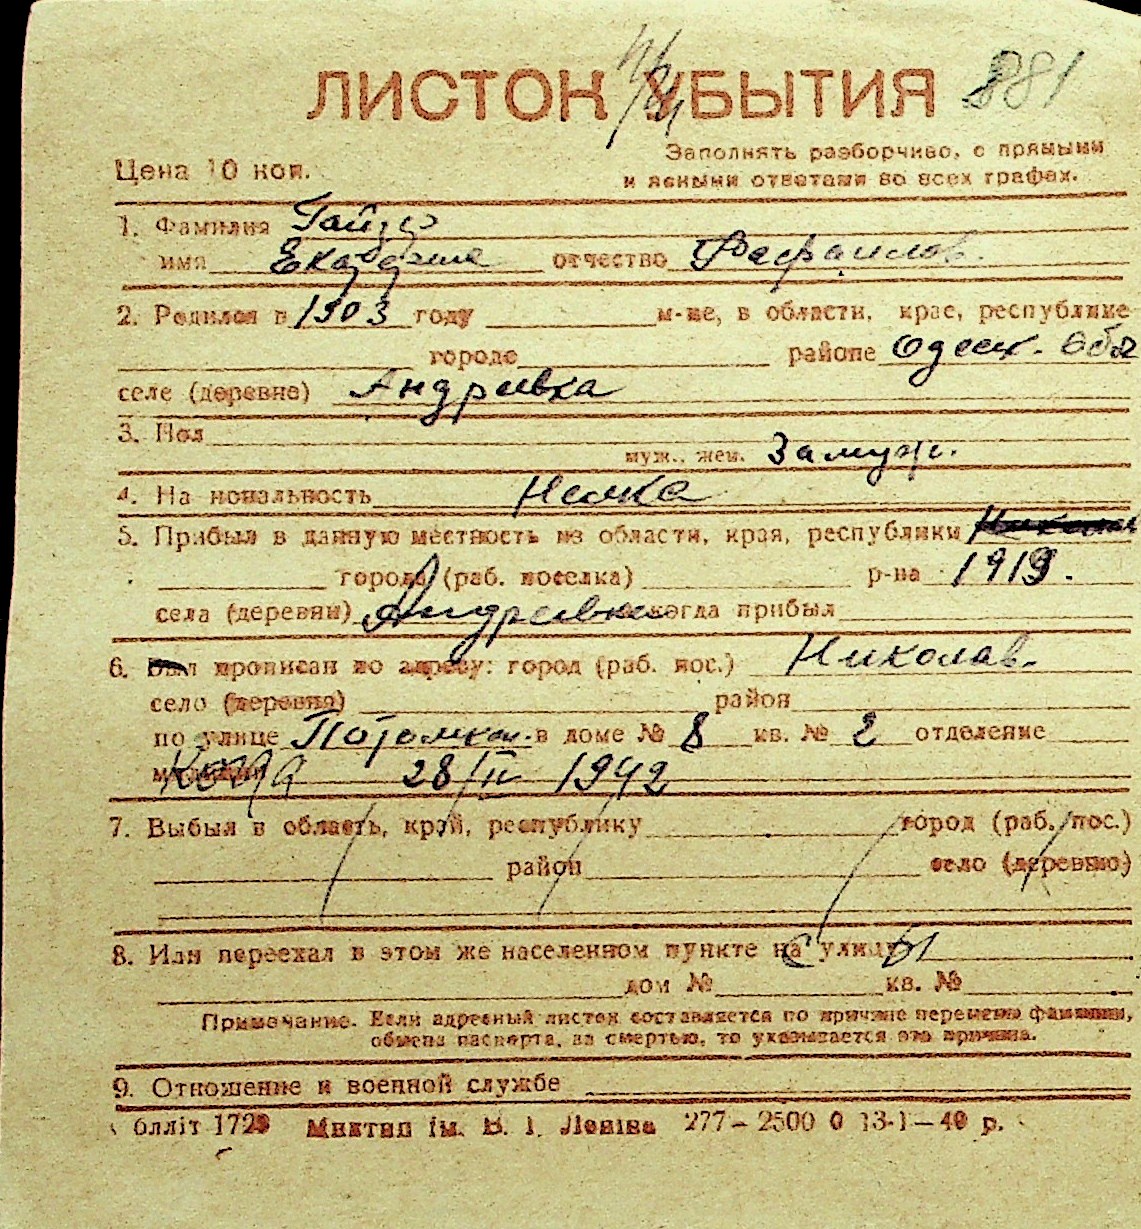 ЛИСТОК УБЫТИЯ 881
Цена 10 коп.
Заполнять разборчиво, с прямыми
и ясными ответами во всех графах.
1. Фамилия
имя Екатерина отчество Рафаилов.
2. Родился в 1903 году м-це, в области, крае, республике
городе районе Одесск. Обл
селе (деревне) Андреевка
3. Пол
муж., жен. Замуж.
4. На нональность Немка
5. Прибыл в данную местность из области, края, республики
города (раб. поселка) р-на 1919.
села (деревни) Андреевка когда прибыл
6. Был прописан по адресу: город (раб. пос.) Николаев.
село (деревня) район
по улице Потомкин. в доме № 8 кв. № 2 отделение
милиции Когда 28/II 1942
7. Выбыл в область, край, республику город (раб. пос.)
район село (деревню)
8. Или переехал в этом же населенном пункте на улицу
дом № кв. №
Примечание. Если адресный листок составляется по причине перемены фамилии,
обмена паспорта, за смертью, то указывается эта причина.
9. Отношение к военной службе
блліт 1729 Миктип ім. В. І. Леніна 277–2500 0 13-1–40 р.